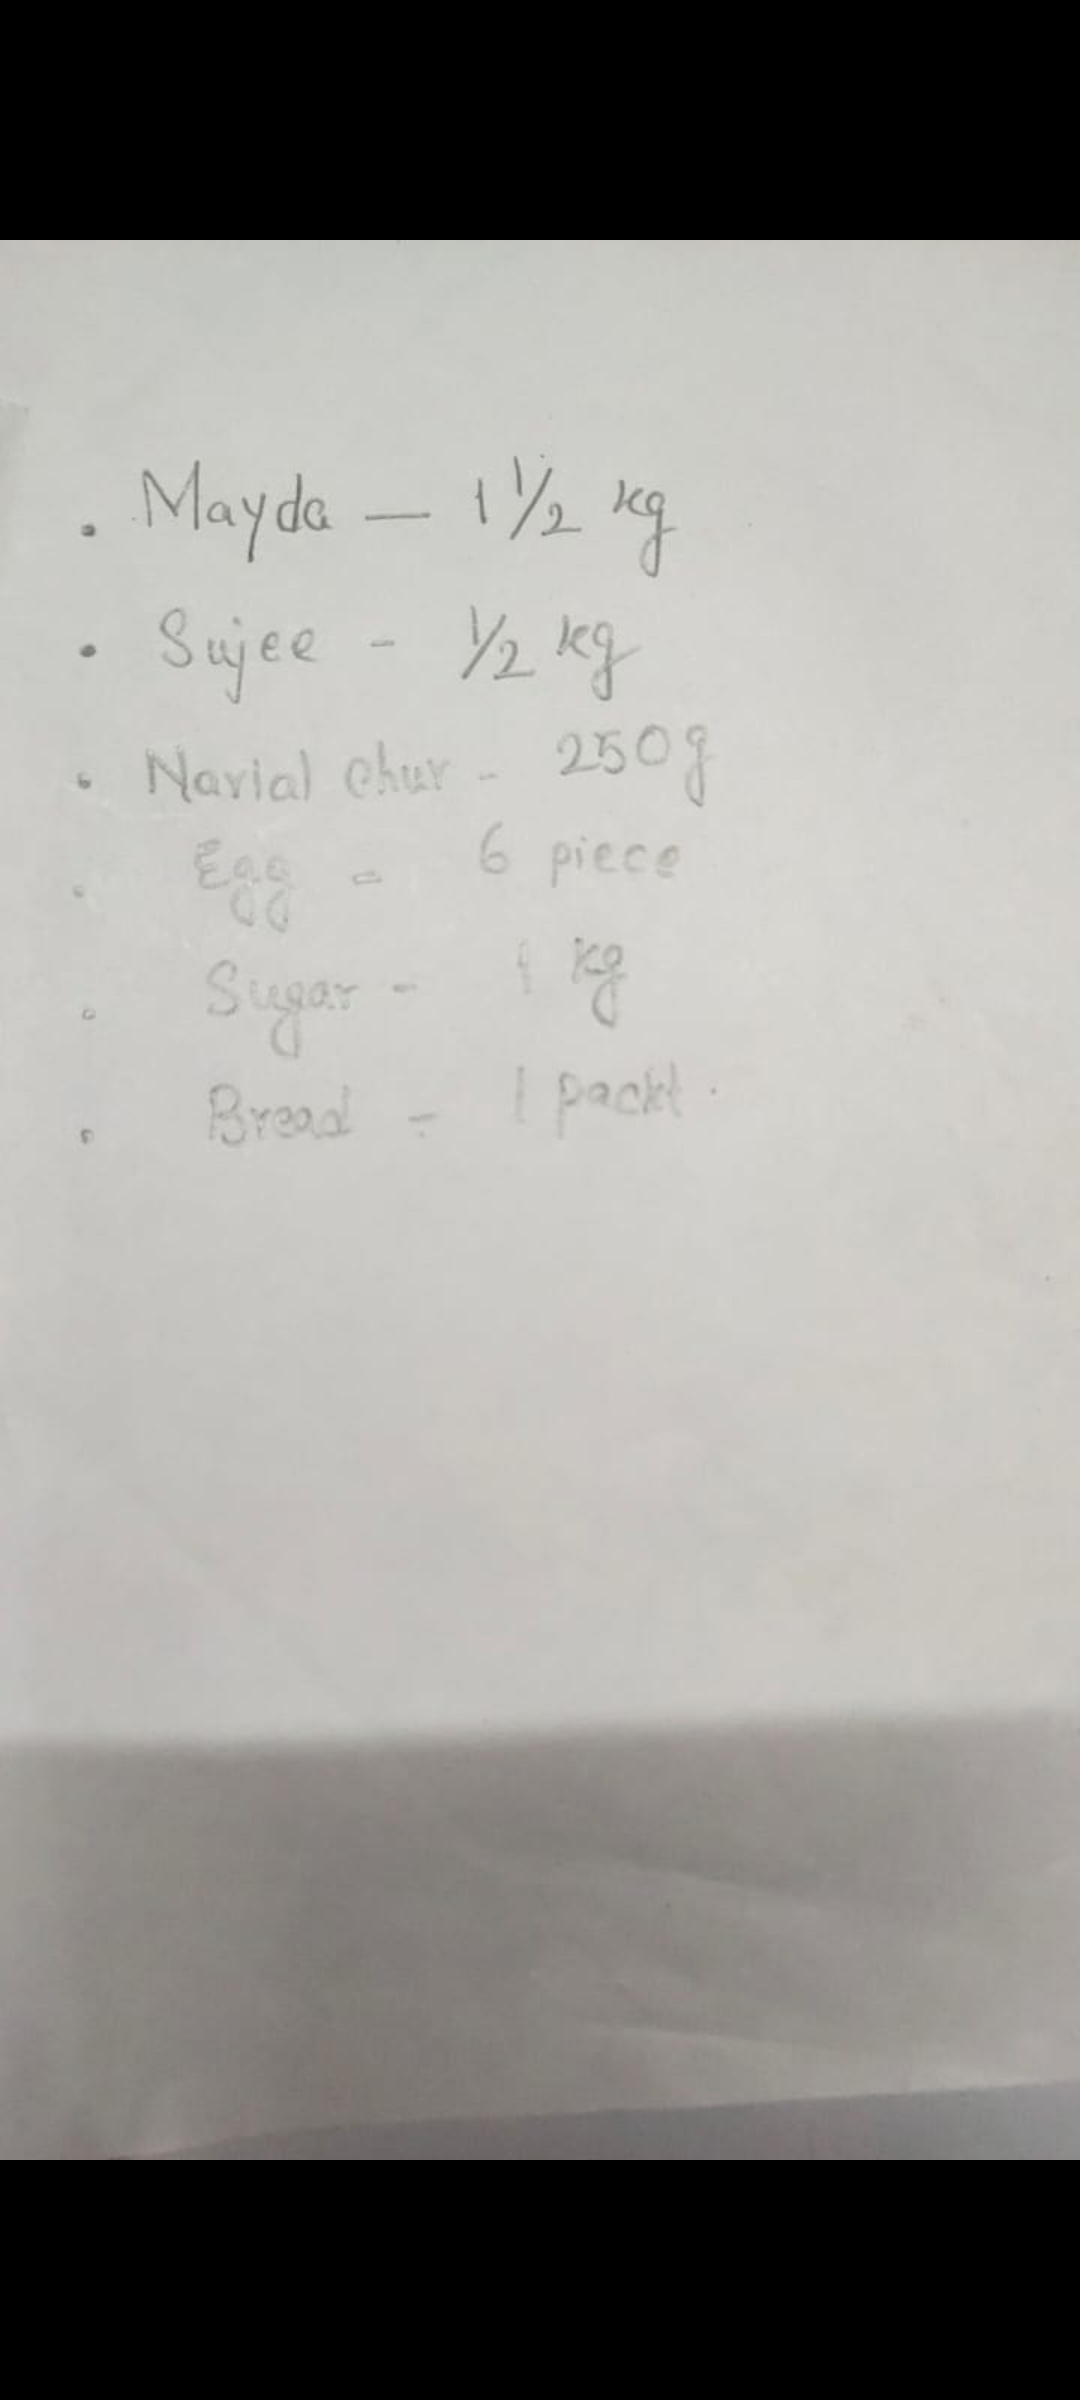 . Mayda — 1 1/2 kg
• Sujee - 1/2 kg
• Narial chur - 250g
. Egg - 6 piece
. Sugar - 1 kg
. Bread - 1 packt.